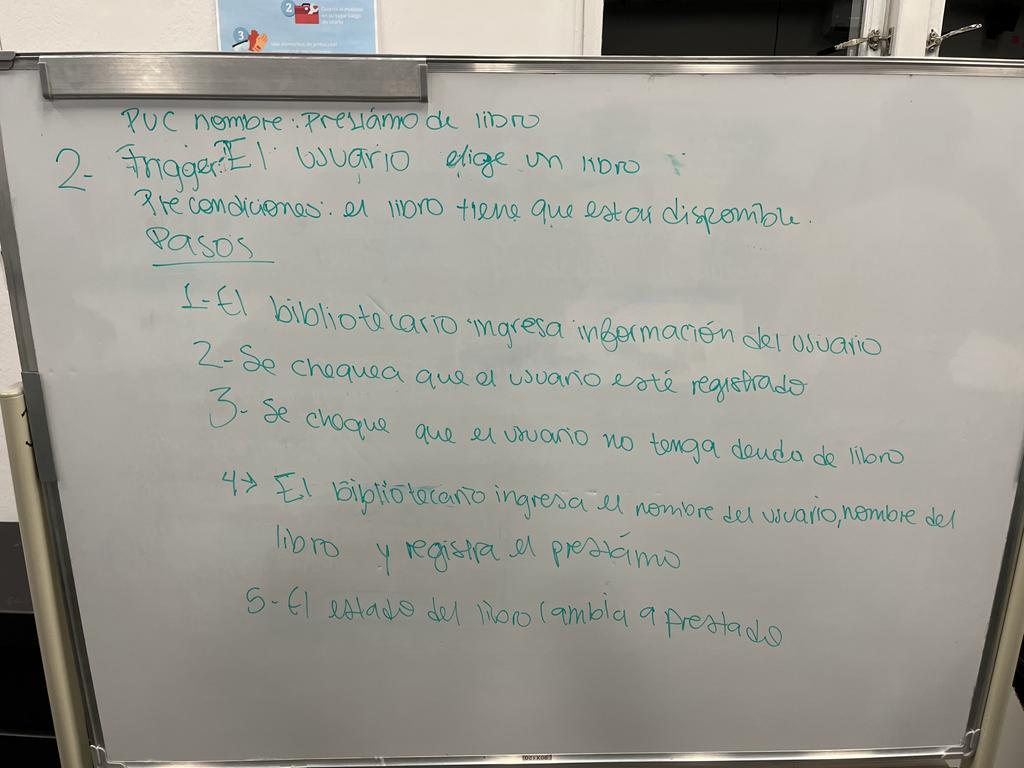 2
Guarda el material
en su lugar luego
de usarlo
3
Usa elementos de protección
PUC nombre: Prestámo de libro
2- Trigger: El usuario elige un libro
Precondiciones: el libro tiene que estar disponible.
Pasos
1- El bibliotecario ingresa información del usuario
2- Se chequea que el usuario esté registrado
3- Se choque que el usuario no tenga deuda de libro
4→ El bibliotecario ingresa el nombre del usuario, nombre del
libro y registra el prestámo
5- El estado del libro cambia a prestado